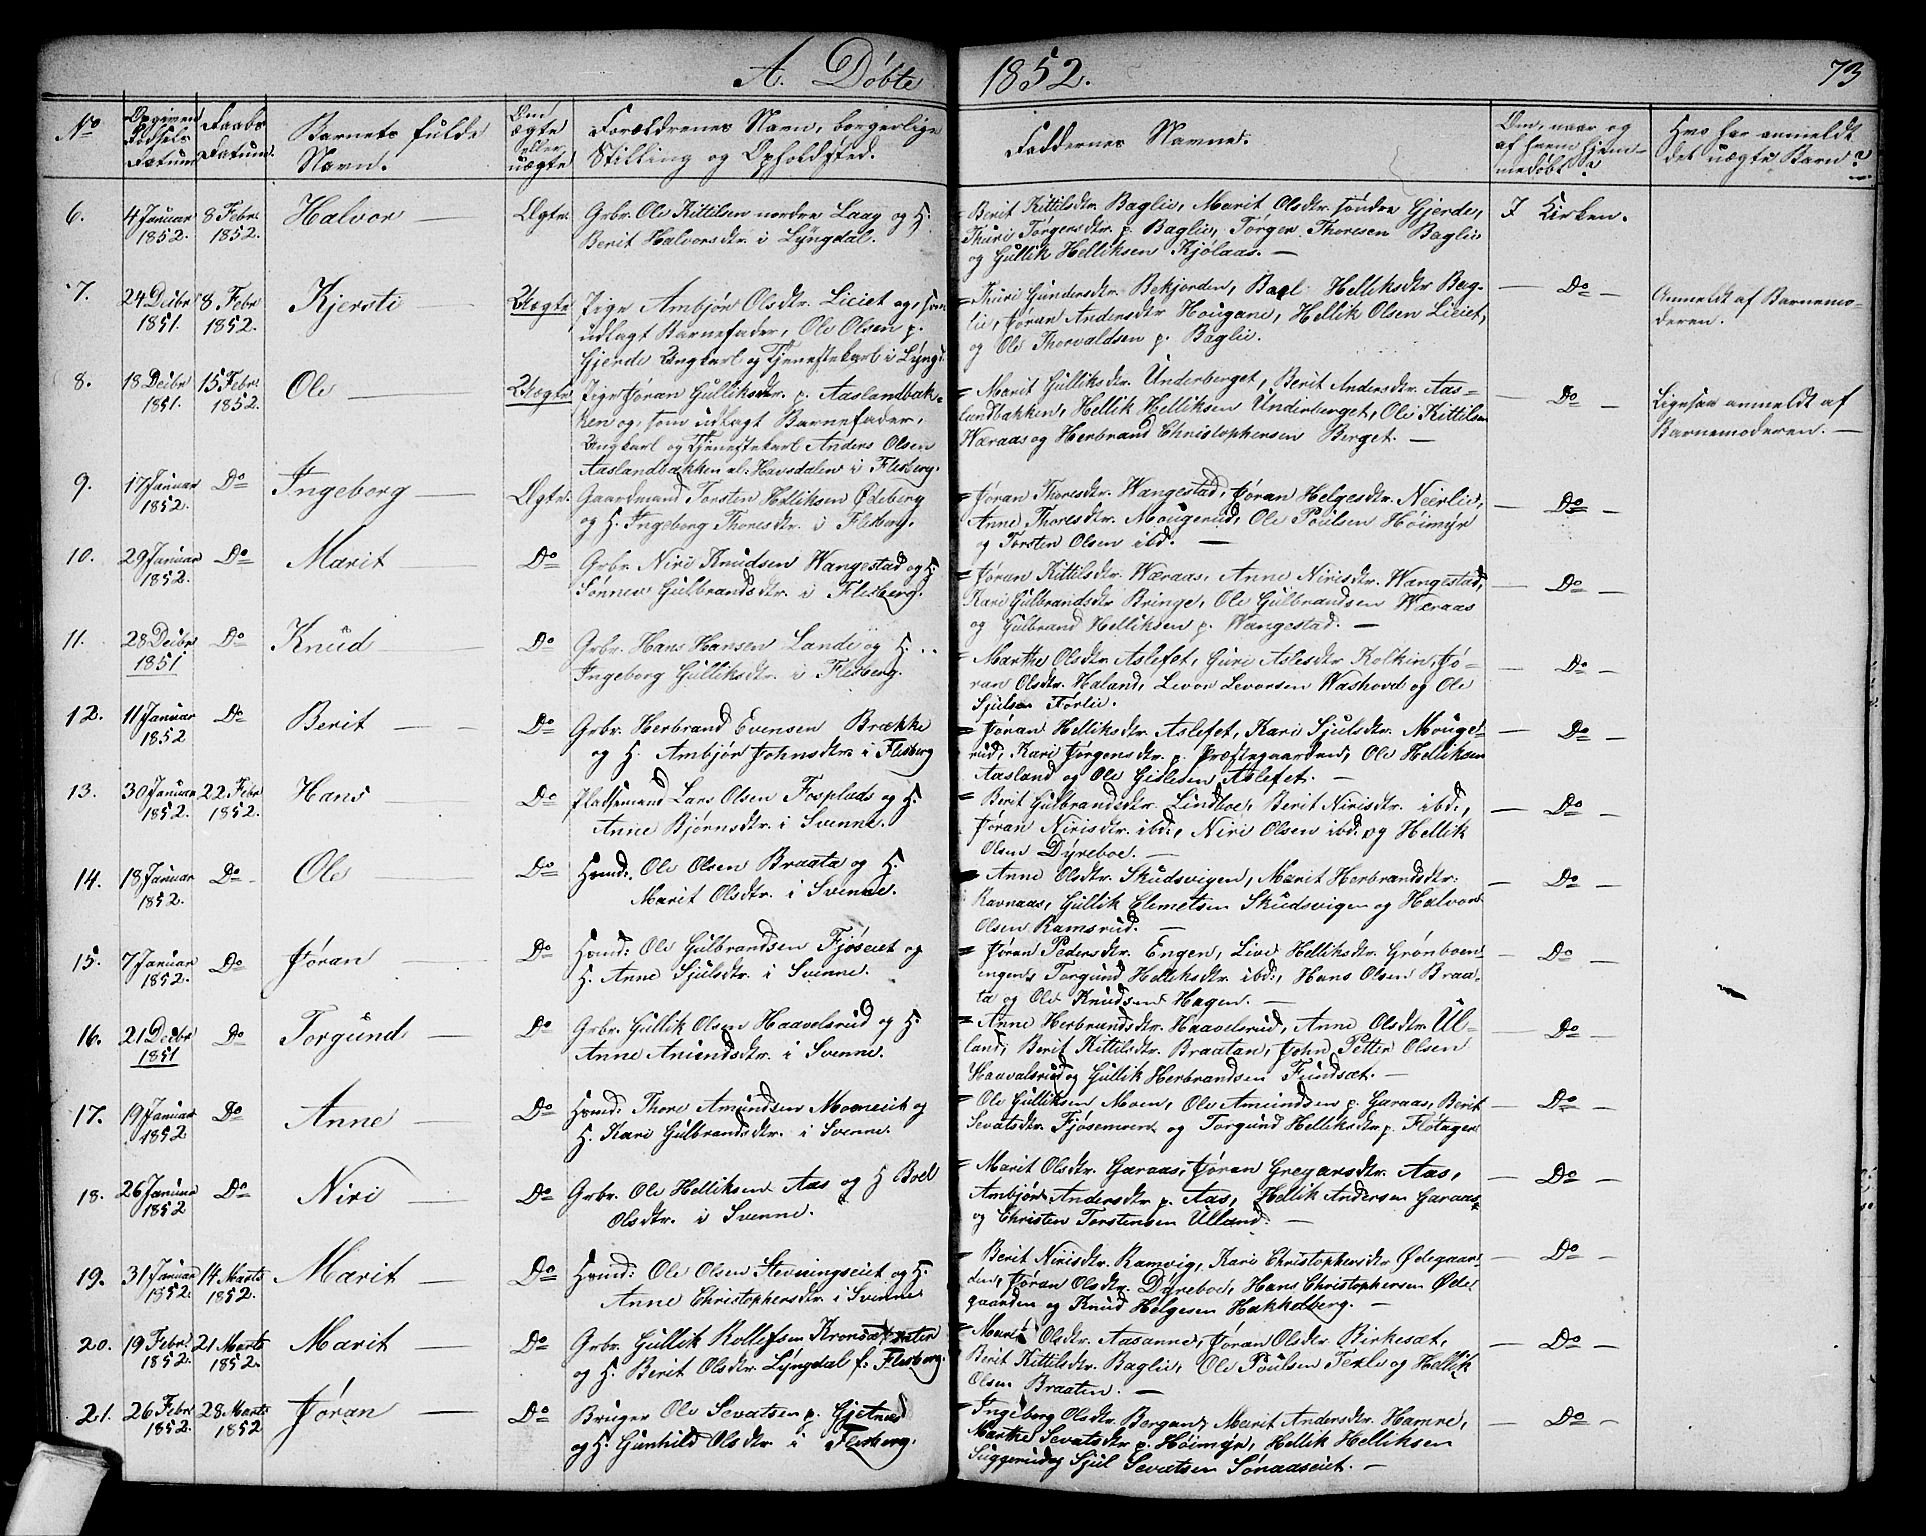 A. Døbte 1852. 73
No
Opgiven Fødsels Datum
Daabs Datum
Barnets fulde Navn.
Om ægte eller uægte
Forældrenes Navn, borgerlige Stilling og Opholdssted.
Faddernes Navne.
Om, naar og af hvem hjemmedøbt?
Hvo har anmeldt det uægte Barn?
6. 4 Januar 1852. 8 Febr. 1852. Halvor — Ægte.
Grbr. Ole Kittilsen nordre Laag og H.
Berit Halvorsdtr. i Lyngdal.
= Berit Kittilsdtr. Baglie, Marit Olsdtr. søndre Gjerde,
Thuri Torgersdtr. p. Baglie, Torger Thoresen Baglie
og Gullik Helliksen Kjølaas. —
I Kirken.
7. 24 Decbr 1851. 8 Febr 1852. Kjersti — Uægte
Pige Ambjør Olsdtr. Lieiet og, som
udlagt Barnefader, Ole Olsen p.
Gjerde Ungkarl og Tjenestekarl i Lyngd.
= Thuri Gundersdtr. Bekjorden, Bael Helliksdtr Bag-
lie, Jøran Andersdtr Hougane, Hellik Olsen Lieiet,
og Ole Thorvaldsen p. Baglie.
— Do —
Anmeldt af Barnemo-
deren.
8. 18 Decbr 1851. 15 Febr. 1852. Ole — Uægte
Pige Jøran Gulliksdtr. p. Aaslandbak-
ken og, som udlagt Barnefader,
Ungkarl og Tjenestekarl Anders Olsen
Aaslandbakken al: Havsdalen i Flesberg.
= Marit Gulliksdtr. Underberget, Berit Andersdtr. Aas-
landbakken, Hellik Helliksen Underberget, Ole Kittilsen
Væraas og Herbrand Christophersen Berget. —
— Do —
Ligesaa anmeldt af
Barnemoderen. —
9. 17 Januar 1852. Do Ingeborg — Ægte.
Gaardmand Torsten Helliksen Ødeberg
og H. Ingeborg Thoresdtr. i Flesberg.
= Jøran Thoresdtr. Wangestad, Jøran Helgesdtr. Neerlie,
Anne Thoresdtr. Mougerud, Ole Poulsen Høimyr
og Torsten Olsen ibd. —
— Do —
10. 29 Januar 1852. Do Marit — Do
Grbr. Niri Knudsen Wangestad og H.
Sønnev Gulbrandsdtr. i Flesberg.
= Jøran Kittilsdtr. Væraas, Anne Nirisdtr. Wangestad,
Kari Gulbrandsdtr Bringe, Ole Gulbrandsen Væraas
og Gulbrand Helliksen p. Wangestad. —
— Do —
11. 28 Decbr 1851 Do Knud — Do
Grbr. Hans Hansen Lande og H.
Ingeborg Gulliksdtr. i Flesberg.
= Marthe Olsdtr. Aslefet, Guri Aslesdtr Kolkin, Jø-
ran Olsdtr. Haland, Levor Levorsen Washovd og Ole
Sjulsen Førlie.
— Do —
12. 11 Januar 1852 Do Berit — Do
Grbr. Herbrand Evensen Brække
og H. Ambjør Johnsdtr. i Flesberg
= Jøran Helliksdtr. Aslefet, Kari Sjulsdtr. Mouge-
rud, Kari Jørgensdtr. p. Præstegaarden, Ole Helliksen
Aasland og Ole Gislesen Aslefet. —
— Do —
13. 30 Januar 1852. 22 Febr 1852. Hans — Do
Pladsmand Lars Olsen Fosplads og H.
Anne Bjørnsdtr. i Svenne.
= Berit Gulbrandsdtr. Lindboe, Berit Nirisdtr. ibd:,
Jøran Nirisdtr. ibd:, Niri Olsen ibd: og Hellik
Olsen Dyreboe. —
— Do —
14. 18 Januar 1852. Do Ole — Do
Hmd: Ole Olsen Braata og H.
Marit Olsdtr. i Svenne.
= Anne Olsdtr. Skudsvigen, Marit Herbrandsdtr:
Ravnaas, Gullik Clemetsen Skudsvigen og Halvor
Olsen Ramsrud. —
— Do —
15. 7 Januar 1852. Do Jøran — Do
Hmd: Ole Gulbrandsen Fjøseiet og
H. Anne Sjulsdtr. i Svenne.
= Jøran Pedersdtr. Engen, Live Helliksdtr. Grønboen-
ingen, Torgund Helliksdtr. ibd:, Hans Olsen Braa-
ta og Ole Knudsen Hagen. —
— Do —
16. 21 Decbr 1851 Do Torgund — Do
Grbr. Gullik Olsen Haavelsrud og H.
Anne Amundsdtr. i Svenne.
= Anne Herbrandsdtr. Haavelsrud, Anne Olsdtr. Ul-
land, Berit Kittilsdtr. Braatan, John Petter Olsen
Haavalsrud og Gullik Herbrandsen Fundsæt. —
— Do —
17. 19 Januar 1852 Do Anne — Do
Hmd: Thore Amundsen Moeneiet og
H. Kari Gulbrandsdtr. i Svenne.
= Ole Gulliksen Moen, Ole Amundsen p. Garaas, Berit
Sevatsdtr. Fjøsemoen og Torgund Helliksdtr p. Fløtager
— Do —
18. 26 Januar 1852 Do Niri — Do
Grbr. Ole Helliksen Aas og H Boel
Olsdtr. i Svenne.
= Marit Olsdtr. Garaas, Jøran Gregarsdtr. Aas,
Ambjør Andersdtr p. Aas, Hellik Andersen Garaas
og Christen Torstensen Ulland. —
— Do —
19. 31 Januar 1852. 14 Marts 1852. Marit — Do
Hmd: Ole Olsen Stevningseiet og H.
Anne Christophersdtr. i Svenne
= Berit Nirisdtr. Ramvig, Kari Christophersdtr Ødegaar-
den, Jøran Olsdtr. Dyreboe, Hans Christophersen Øde-
gaarden og Knud Helgesen Hakkelberg. —
— Do —
20. 19 Febr. 1852. 21 Marts 1852. Marit — Do
Grbr. Gullik Rollefsen
og H. Berit Olsdtr. Lyngdal f. Flesberg.
= Marit Olsdtr. Aasanne, Jøran Olsdtr Birkesæt,
Berit Kittilsdtr. Baglie, Ole Poulsen Texle og Hellik
Olsen Braaten. —
— Do —
21. 26 Febr 1852. 28 Marts 1852 Jøran — Do
Bruger Ole Sevatsen p. Gjetnes
og H. Gunhild Olsdtr. i Flesberg.
= Ingeborg Olsdtr. Bergan, Marit Andersdtr. Hamre,
Marthe Sevatsdtr. p. Høimyr, Hellik Helliksen
Suggerud og Sjul Sevatsen Søraaseiet. —
— Do —